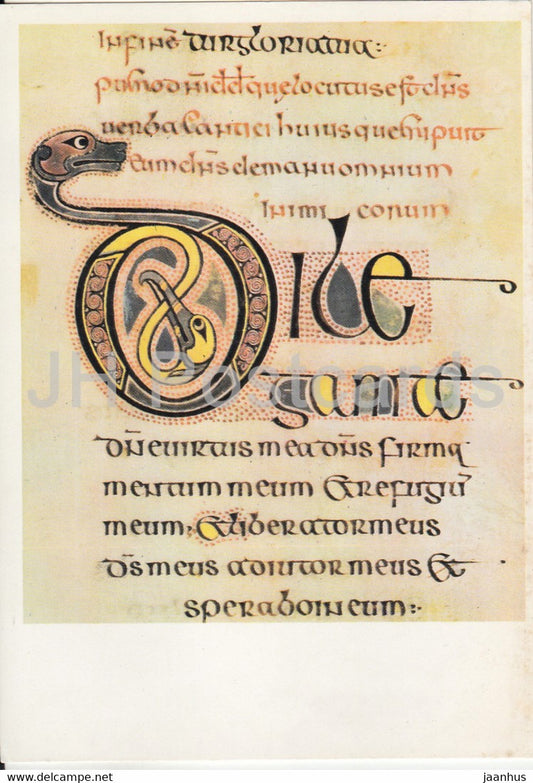 infinē
dn̄i dd que locutus est dn̄s
uerba cantici huius que
eum dn̄s de manu omnium
inimicorum
Dile
gamte
dn̄e uirtus mea dn̄s firma
mentum meum & refugiū
meum· & liberator meus
d̄s meus adiutor meus &
sperabo in eum:·
JH Postcards
eshop.jhpostcards.com
jaanhus